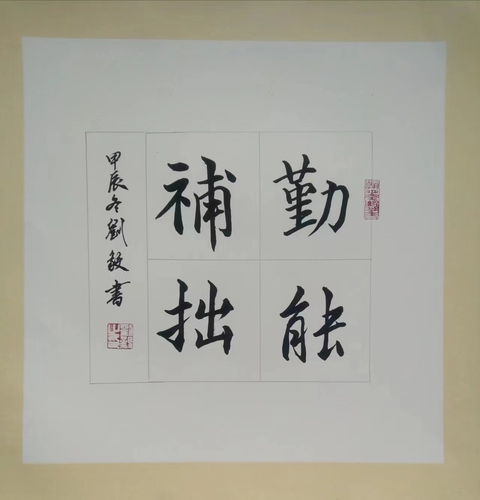 勤能
補拙
甲辰冬劉敏書